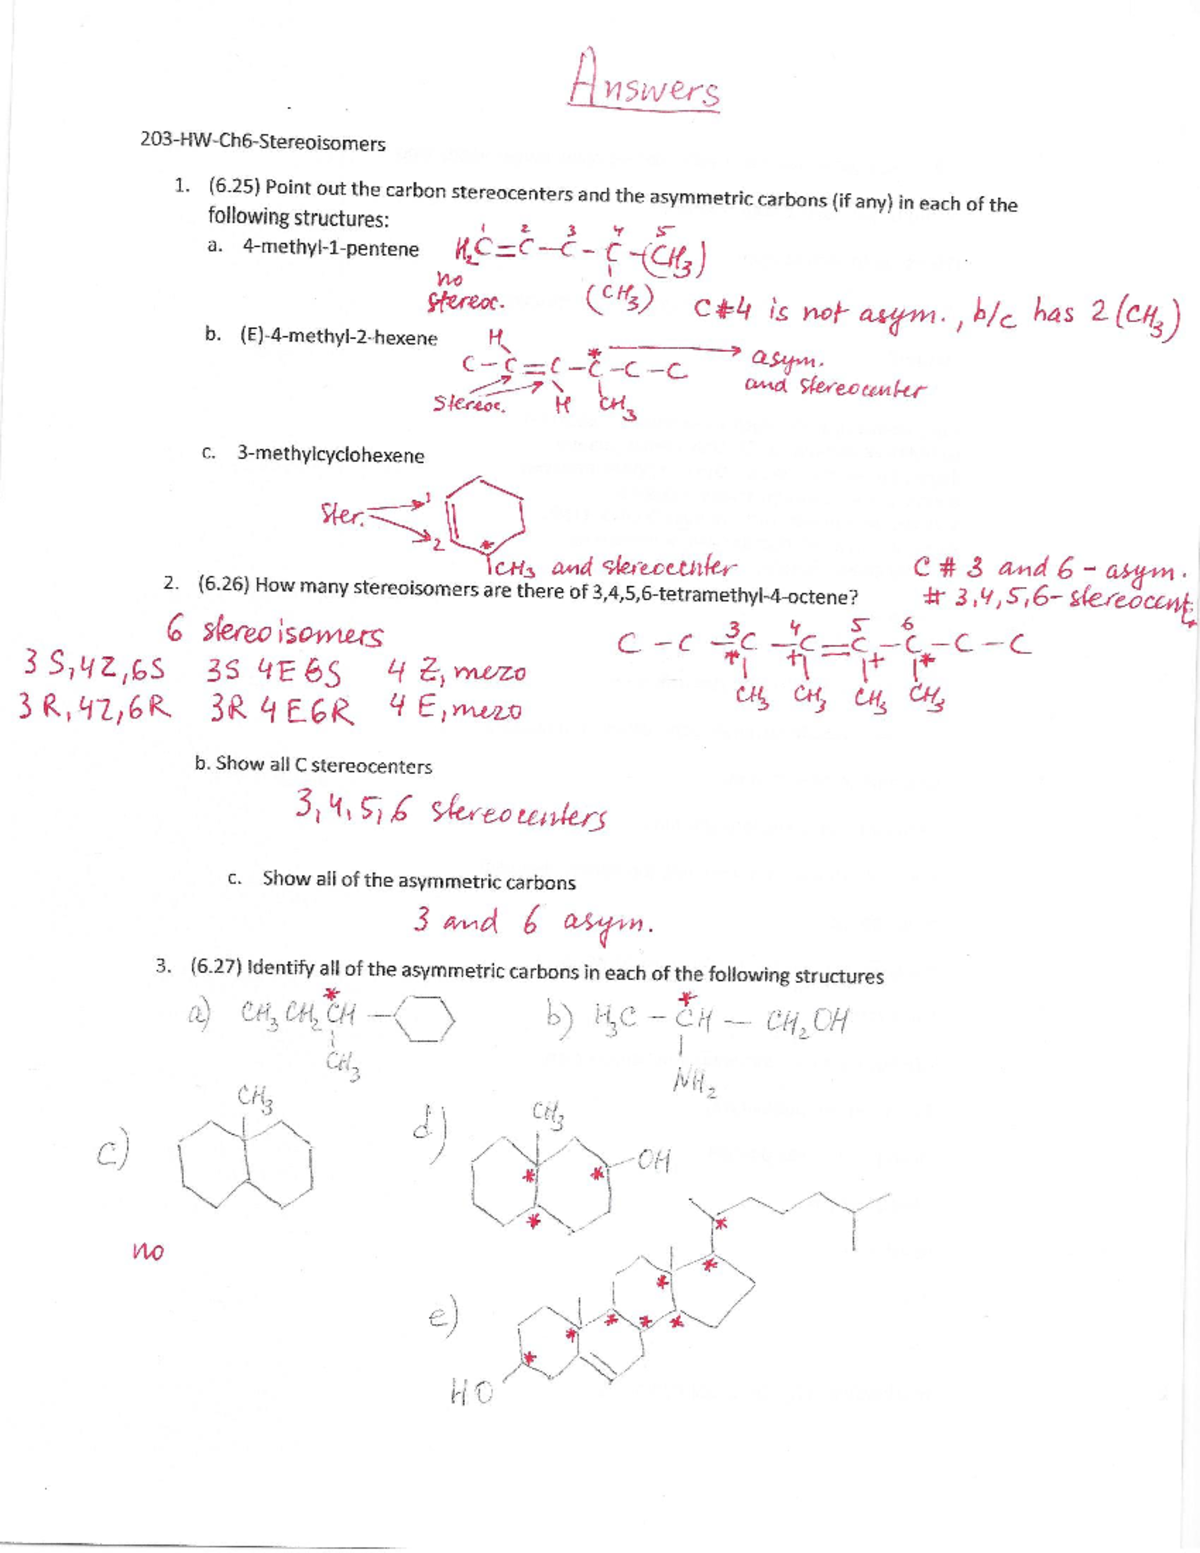 Answers
203-HW-Ch6-Stereoisomers
1. (6.25) Point out the carbon stereocenters and the asymmetric carbons (if any) in each of the
following structures:
a. 4-methyl-1-pentene
1 2 3 4 5
H₂C=C-C-C-(CH₃)
(CH₃)
no
stereoc.
C#4 is not asym., b/c has 2 (CH₃)
b. (E)-4-methyl-2-hexene
H
C-C=C-C*-C-C
H CH₃
Stereoc.
asym.
and stereocenter
c. 3-methylcyclohexene
Ster.
1
2
*
CH₃ and stereocenter
2. (6.26) How many stereoisomers are there of 3,4,5,6-tetramethyl-4-octene?
C # 3 and 6 - asym.
# 3,4,5,6- stereocent.
6 stereoisomers
3 4 5 6
C-C-C-C=C-C-C-C
* + + *
CH₃ CH₃ CH₃ CH₃
3S,4Z,6S 3S 4E 6S 4 Z, mezo
3R,4Z,6R 3R 4E6R 4 E, mezo
b. Show all C stereocenters
3,4,5,6 stereocenters
c. Show all of the asymmetric carbons
3 and 6 asym.
3. (6.27) Identify all of the asymmetric carbons in each of the following structures
a) CH₃ CH₂ C*H
CH₃
b) H₃C - C*H - CH₂OH
NH₂
c) CH₃
no
d) CH₃
OH
* * *
e)
HO
* * * * * * * *